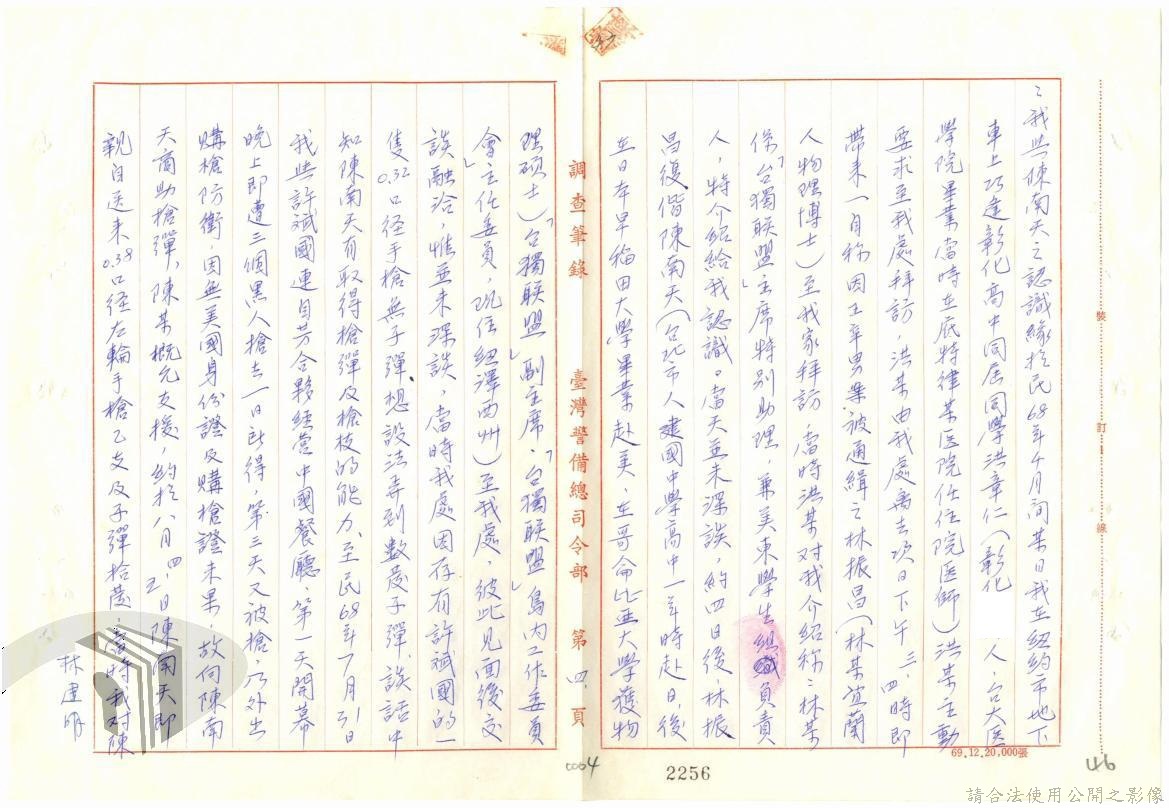 ：我與陳南天之認識緣於民68年4月間某日我在紐約市地下
車上巧逢彰化高中同屆同學洪章仁（彰化　人，台大醫
學院畢業當時在底特律某医院任住院医師）洪某主動
要求至我處拜訪，洪某由我處离去次日下午三、四時即
帶來一自称因王幸男業被通緝之林振昌（林某宜蘭
人物理博士）至我家拜訪，當時洪某对我介紹称：林某
係「台獨联盟」主席特别助理，兼美東學生組織負責
人，特介紹給我認識。當天並未深談，約四日後，林振
昌復偕陳南天（台北市人建國中學高中一年時赴日，後
在日本早稲田大學畢業赴美，在哥侖比亚大學獲物
理硕士）「台獨联盟」副主席、「台獨联盟」島内工作委員
會」主任委員，現住紐澤西州）至我處，彼此見面後交
談融洽，惟並未深談，當時我處因存有許斌國的一
隻0.32口径手槍無子彈，想設法弄到數发子彈，談話中
知陳南天有取得槍彈及槍枝的能力，至民68年7月31日
我與許斌國連自芳合夥經营中國餐廳，第一天開幕
晚上即遭三個黑人搶去一日所得，第三天又被搶，另外出
購槍防衛，因無美國身份證及購槍證未果，故向陳南
天商助槍彈，陳某概允支援，約於八月四、五日陳南天即
親自送來0.38口径左輪手槍乙支及子彈拾发，當時我对陳
林建明
調查筆錄　臺灣警備總司令部　第四頁
裝訂線
69.12.20,000張
0004
2256
46
請合法使用公開之影像